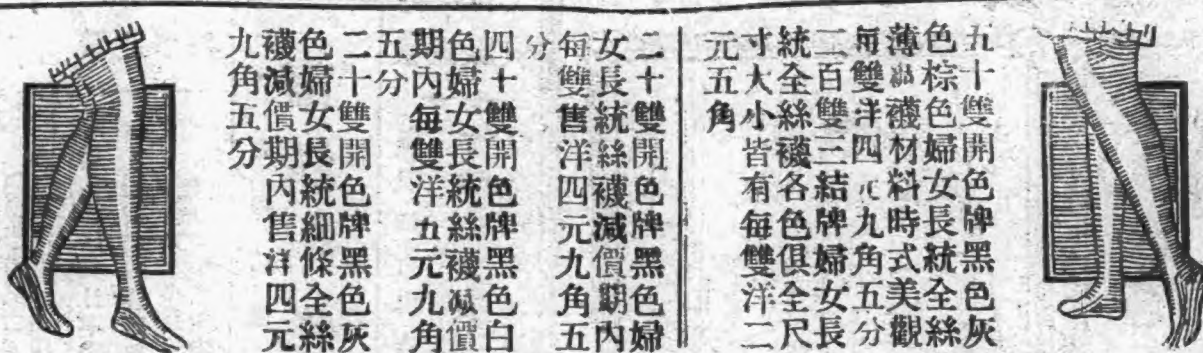 五十雙開色牌黑色灰
色棕色婦女長統全絲
薄襪材料時式美觀
每雙洋四元九角五分
二百雙三結牌婦女長
統全絲襪各色俱全尺
寸大小皆有每雙洋二
元五角
二十雙開色牌黑色婦
女長統絲襪減價期內
每雙售洋四元九角五
分
四十雙開色牌黑色白
色婦女長統絲襪減價
期內每雙洋五元九角
五分
二十雙開色牌黑色灰
色婦女長統細條全絲
襪減價期內售洋四元
九角五分